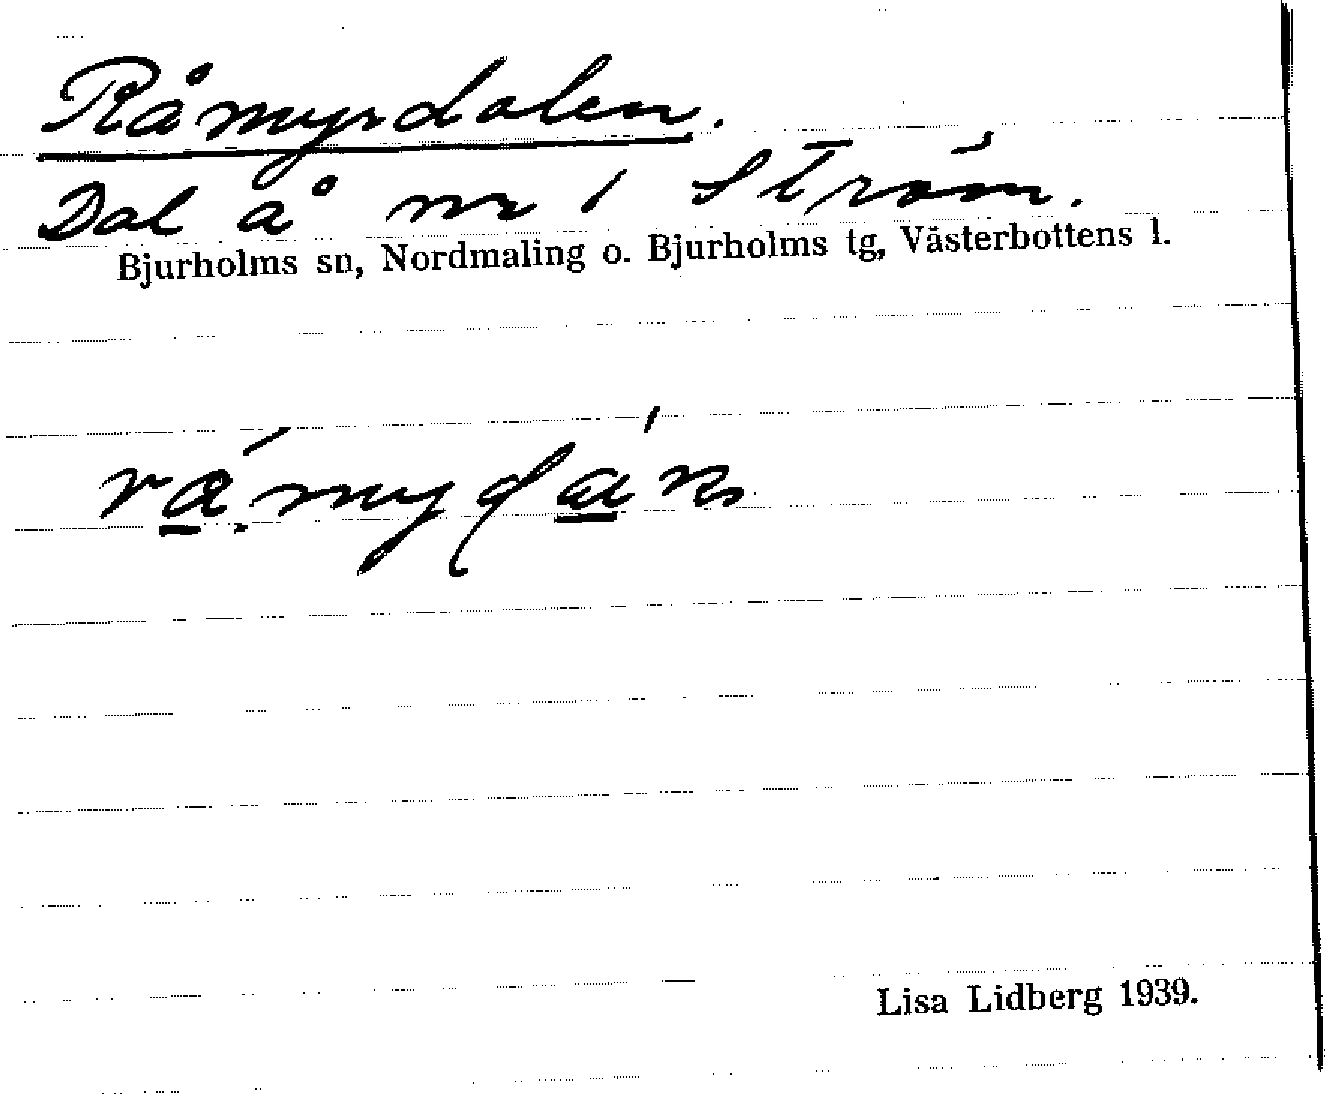 Råmyrdalen.
Dal å nr 1 Ström.
Bjurholms sn, Nordmaling o. Bjurholms tg, Västerbottens l.
Lisa Lidberg 1939.